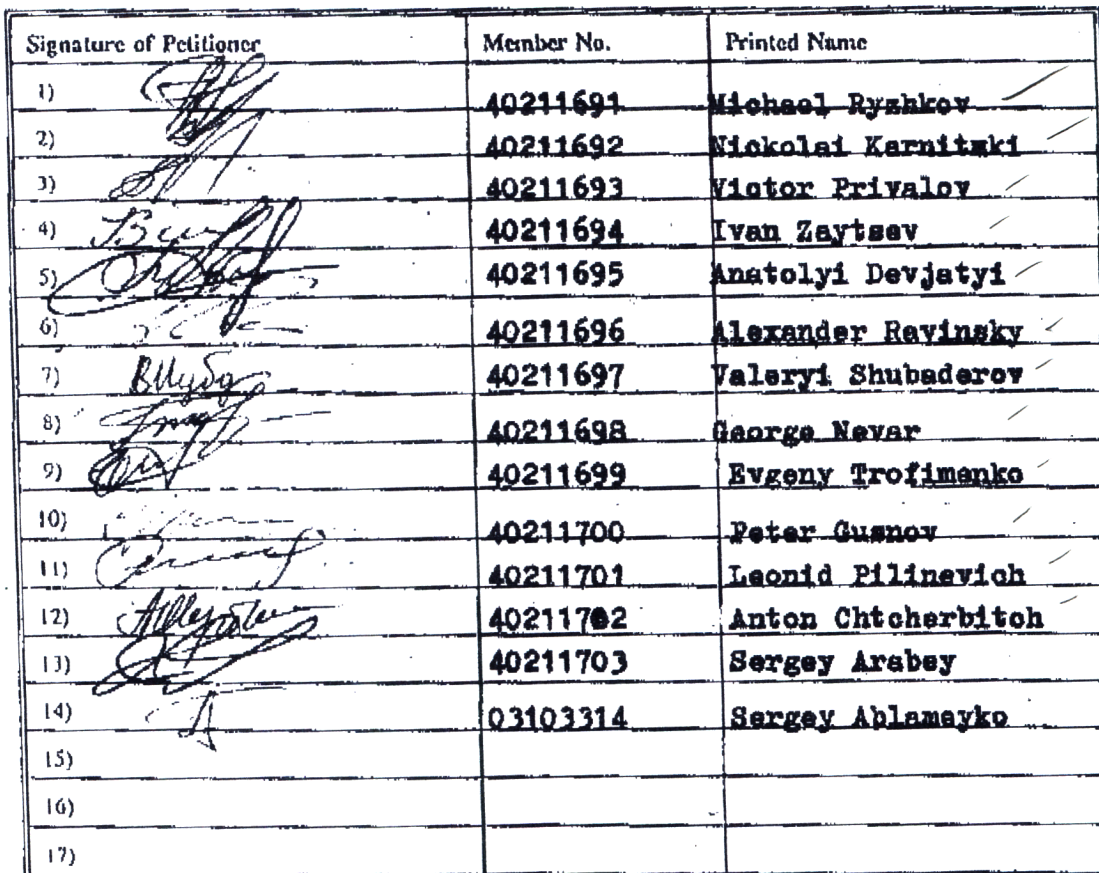 Signature of Petitioner Member No. Printed Name
1) 40211691 Michael Ryzhkov
2) 40211692 Nickolai Karnitzki
3) 40211693 Victor Privalov
4) 40211694 Ivan Zaytsev
5) 40211695 Anatolyi Devjatyi
6) 40211696 Alexander Ravinsky
7) ВШубо 40211697 Valeryi Shubaderov
8) 40211698 George Nevar
9) 40211699 Evgeny Trofimenko
10) 40211700 Peter Gusnov
11) 40211701 Leonid Pilinevich
12) 40211702 Anton Chtcherbitch
13) 40211703 Sergey Arabey
14) 03103314 Sergey Ablameyko
15)
16)
17)